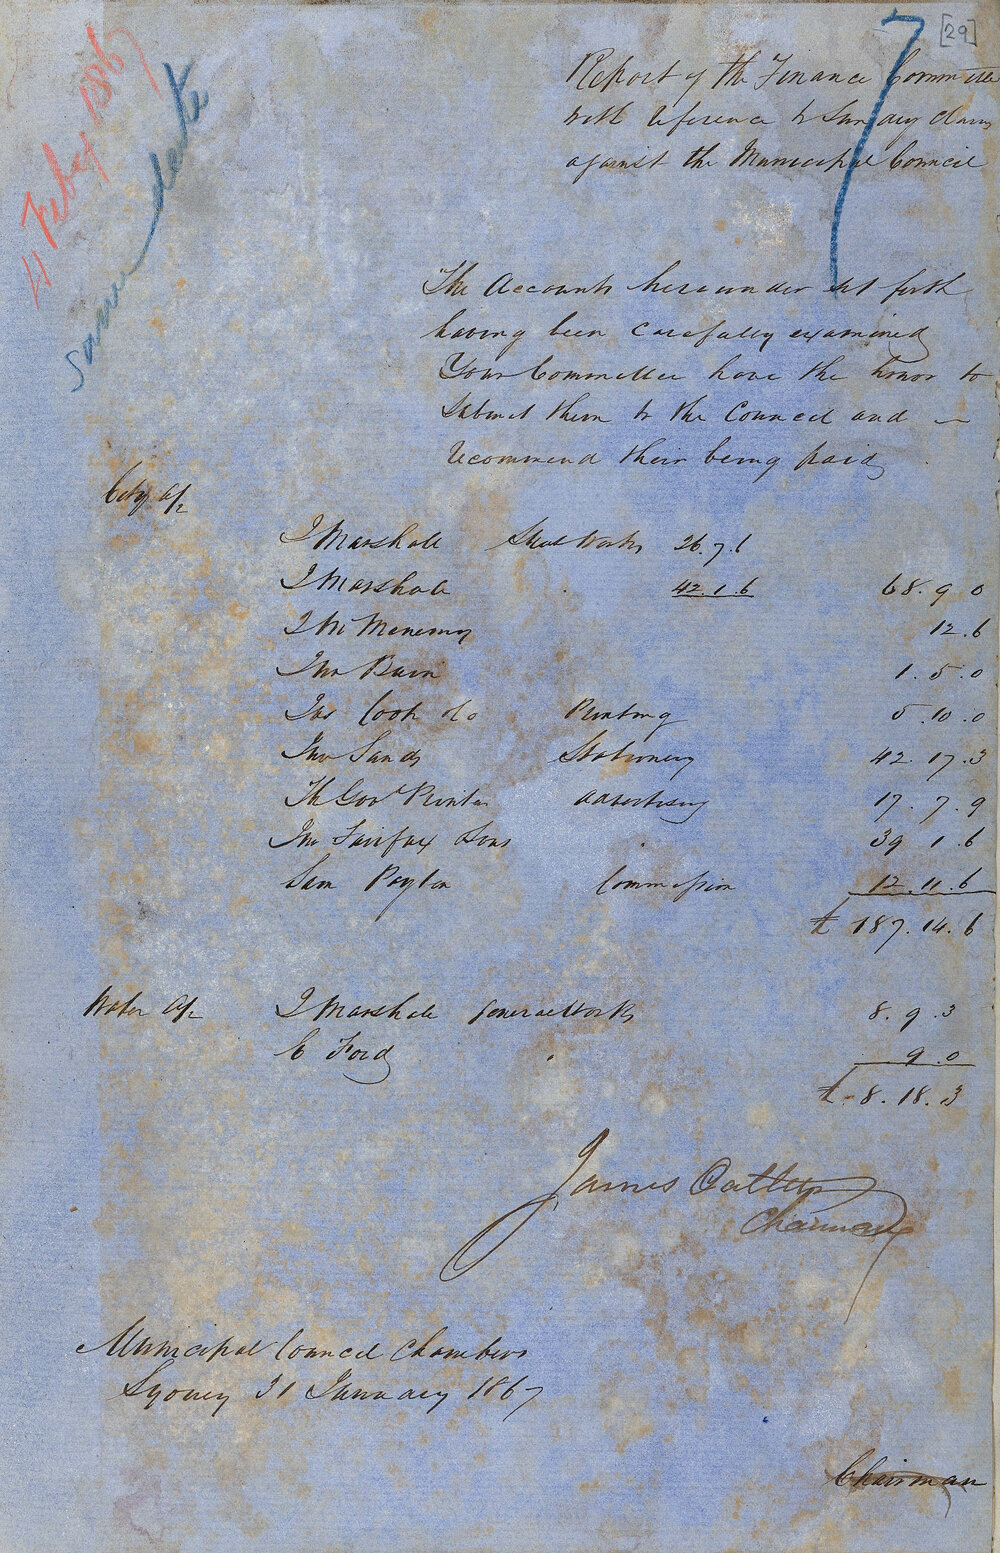 [29]
7
11 Feby 1867
same date
Report of the Finance Committee
with reference to Sundry Claims
against the Municipal Council
The Accounts hereunder set forth
having been carefully examined
Your Committee have the honor to
submit them to the Council and
recommend their being paid
City a/c
J Marshall Street Works 26.7.6
J Marshall " 42.1.6 68.9.0
J McMenemy 12.6
Jno Bain 1.5.0
Jas Cook & Co Printing 5.10.0
Jno Sands Stationery 42.17.3
Th Govt Printer Advertising 17.7.9
Jno Fairfax & Sons " 39.1.6
Sam Peyton Commission 12.11.6
£ 187.14.6
Water a/c J Marshall General Works 8.9.3
E Ford " 9.0
£ 8.18.3
James Oatley
Chairman
Municipal Council Chambers
Sydney 31 January 1867
Chairman